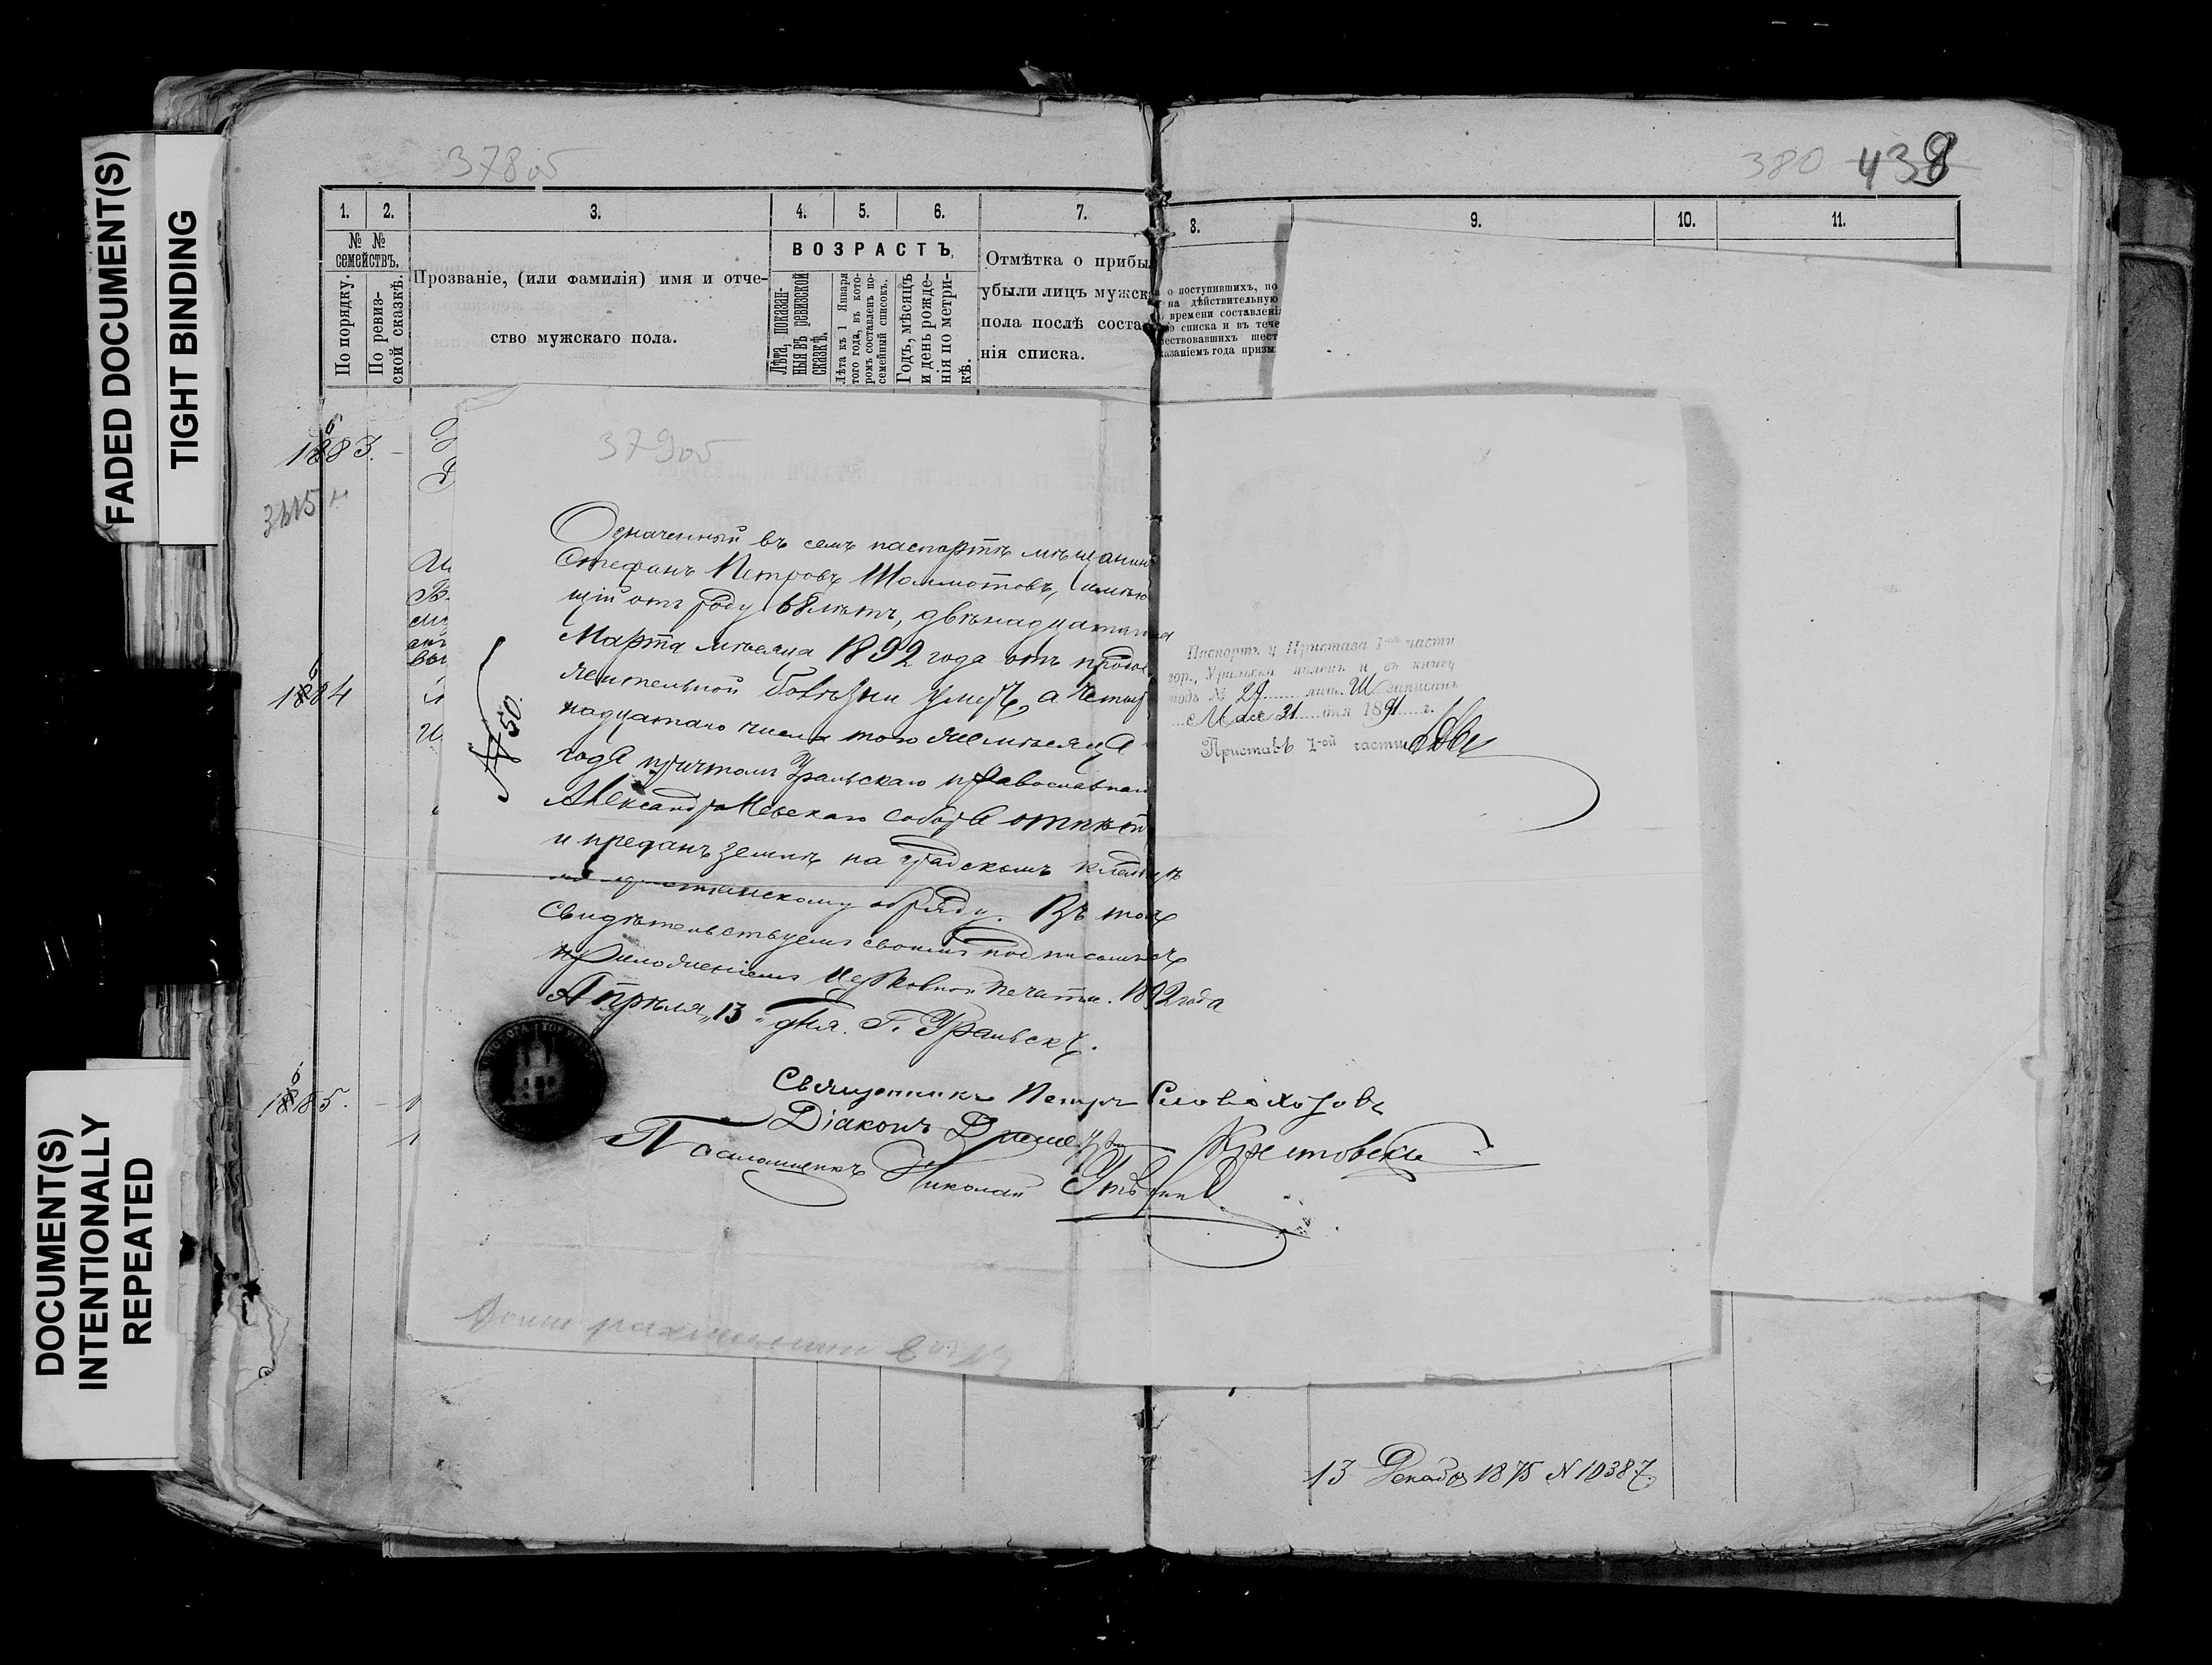 FADED DOCUMENT(S)
TIGHT BINDING
DOCUMENT(S)
INTENTIONALLY
REPEATED
378 об
380 438
1. 2. 3. 4. 5. 6. 7. 8. 9. 10. 11.
№ №
семействъ.
По порядку.
По ревиз-
ской сказкѣ.
Прозваніе, (или фамилія) имя и отче-
ство мужскаго пола.
ВОЗРАСТЪ.
Лѣта, показан-
ныя въ ревизской
сказкѣ.
Лѣта къ 1 Января
того года, въ кото-
ромъ составленъ по-
семейный списокъ.
Годъ, мѣсяцъ
и день рожде-
нія по метри-
кѣ.
Отмѣтка о прибы
убыли лицъ мужск
пола послѣ соста
нія списка.
о поступившихъ, по
на дѣйствительную
времени составлені
списка и въ тече
шествовавшихъ шест
казаніемъ года призы
1883.
1884
1885.
379 об
Означенный въ семъ паспортѣ мѣщанинъ
Стефанъ Петровъ Шаммотовъ, имѣю
щій отъ роду 68 лѣтъ, двѣнадцатаго
Марта мѣсяца 1892 года отъ продол
жительной болѣзни умеръ, а четыр
надцатаго числа того же мѣсяца
года причтомъ Уральскаго православнаго
Александро Невскаго собора отпѣтъ
и преданъ землѣ на градскомъ кладбищѣ
по христіанскому обряду. Въ томъ
свидѣтельствуемъ своимъ подписомъ съ
приложеніемъ церковной печати. 1892 года
Апрѣля „13" дня. Г. Уральскъ.
№ 50.
Священникъ Петръ Словохотовъ
Діаконъ Димитрій
Псаломщикъ Николай
Паспортъ у Пристава 1-ой части
гор. Уральска явленъ и въ книгу
подъ № 29 лит. Ш записанъ
Мая 31 дня 1891 г.
Приставъ 1-ой части
13 Декабря 1875 N 10387